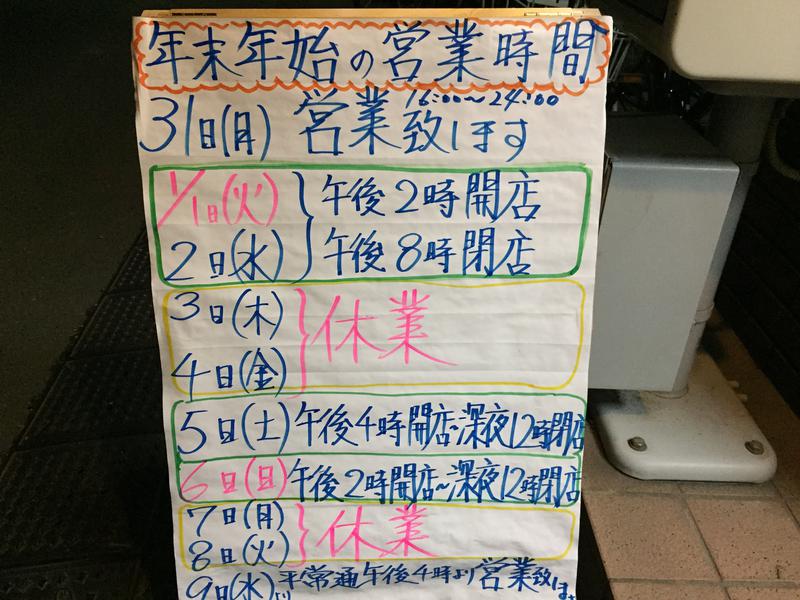 年末年始の営業時間
31日(月) 営業致します 16:00~24:00
1/1日(火) 午後2時開店
2日(水) 午後8時閉店
3日(木) 休業
4日(金)
5日(土) 午後4時開店~深夜12時閉店
6日(日) 午後2時開店~深夜12時閉店
7日(月) 休業
8日(火)
9日(水)より 平常通午後4時より営業致しま